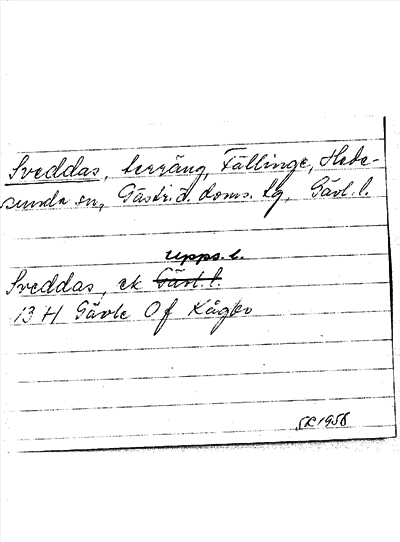 Sveddas, terräng, Fällinge, Hede-
sunda sn, Gästr. d. doms. tg, Gävl. l.
Upps. l.
Sveddas, ek Gävl. l.
13 H Gävle Of Kågbo
SK 1958